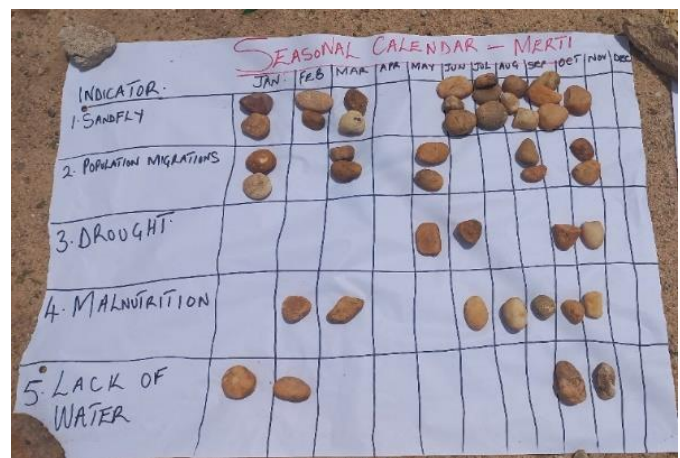 SEASONAL CALENDAR – MERTI
INDICATOR. JAN. FEB MAR APR MAY JUN JUL AUG SEP OCT NOV DEC
1. SANDFLY
2. POPULATION MIGRATIONS
3. DROUGHT.
4. MALNUTRITION
5. LACK OF
WATER